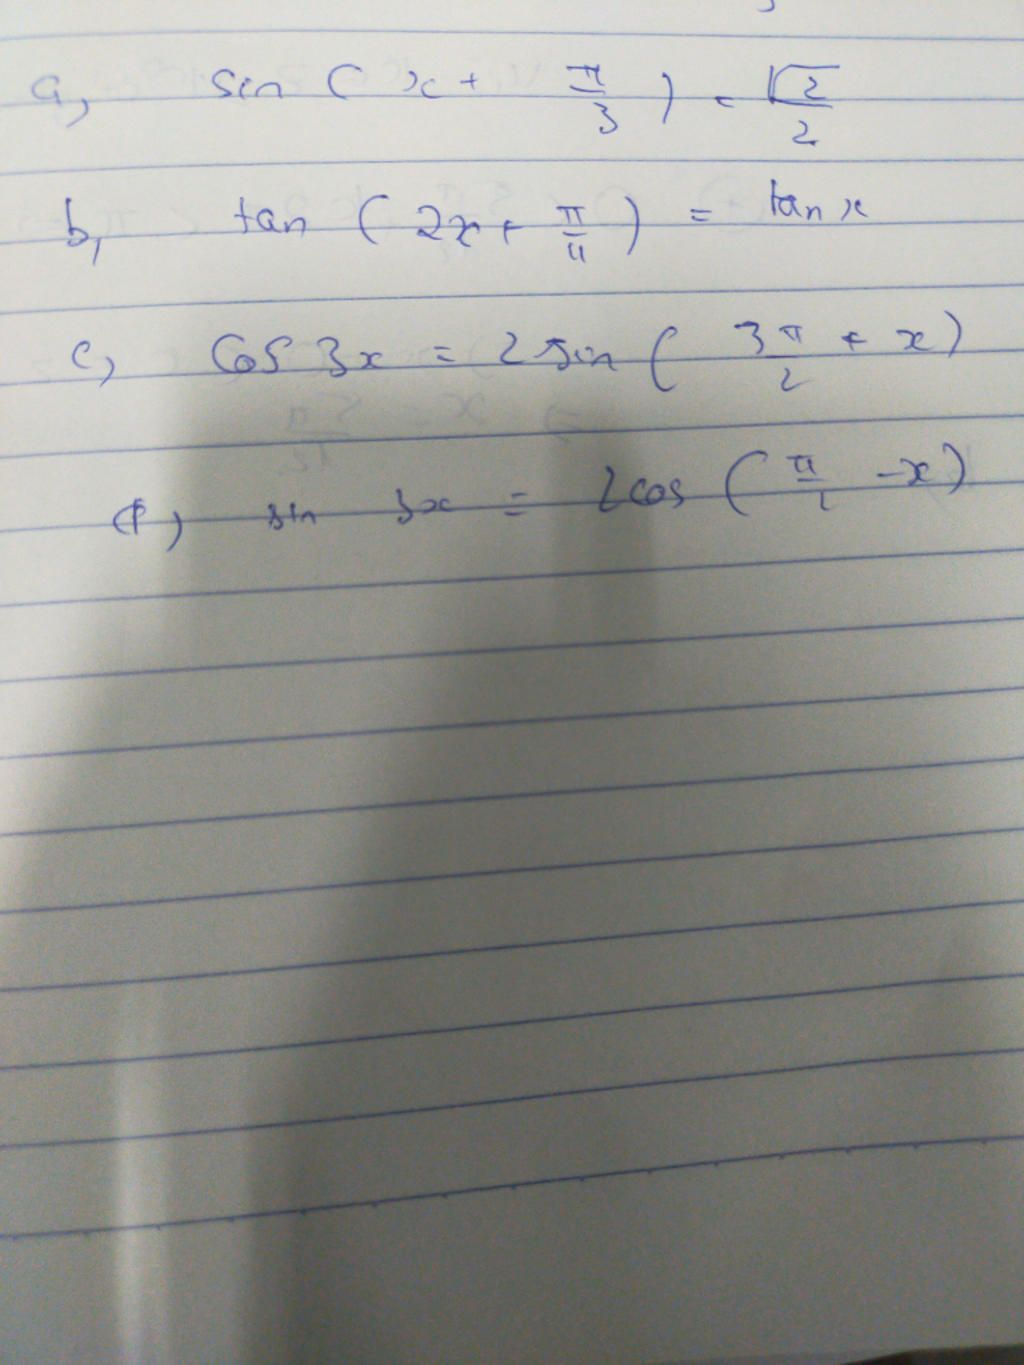 a, sin ( x + π/3 ) = √2/2
b, tan ( 2x + π/4 ) = tan x
c, Cos 3x = 2 sin ( 3π/2 + x )
d, sin 3x = 2 cos ( π/2 - x )